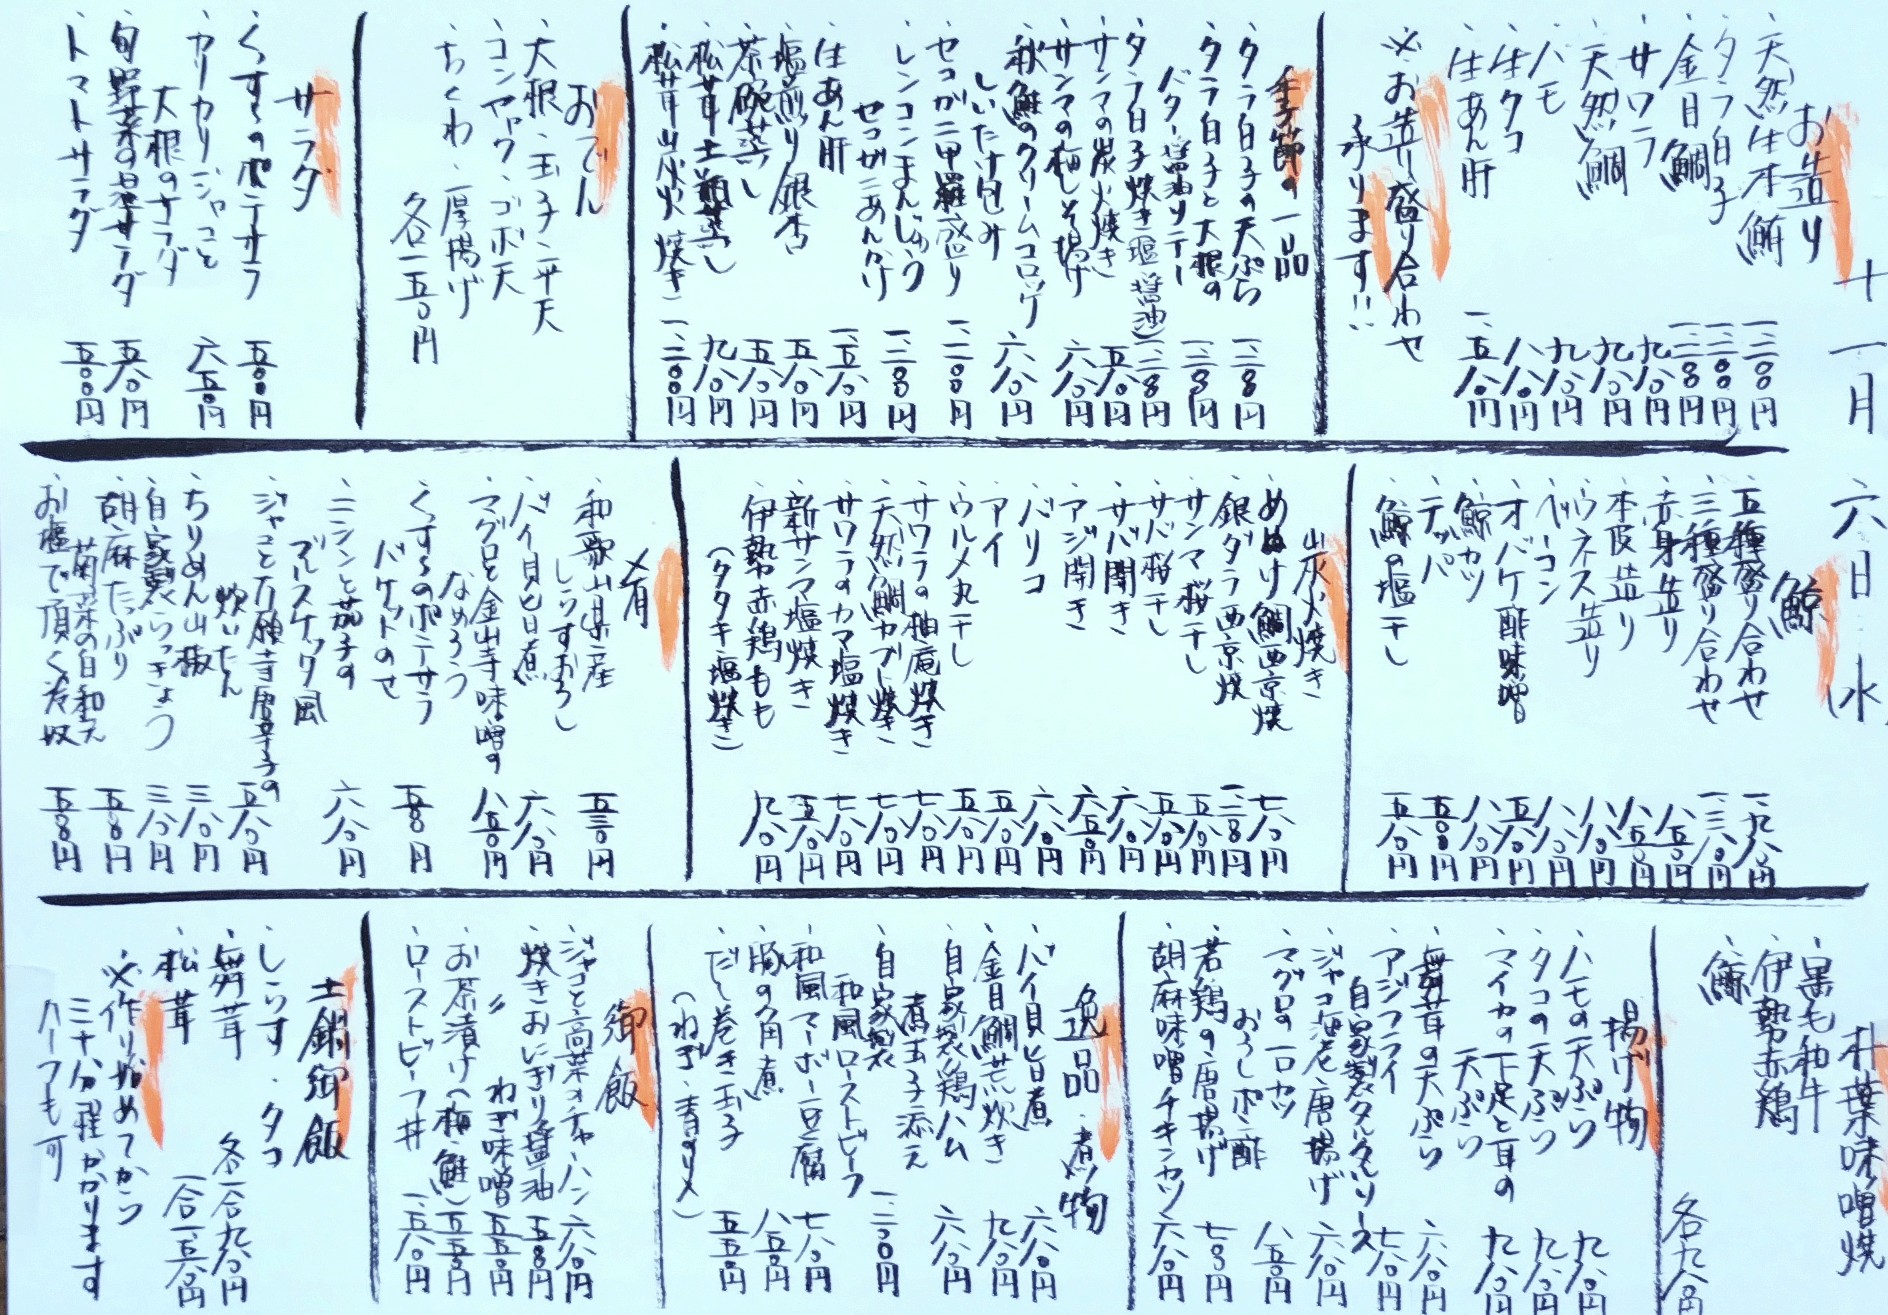 十一月六日(水)
お造り
・天然生本鮪 一、二〇〇円
・タラ白子 一、二〇〇円
・金目鯛 一、二〇〇円
・サワラ 九八〇円
・天然鯛 九八〇円
・ハモ 九八〇円
・生タコ 八八〇円
・生あん肝 一、五八〇円
※お造り盛り合わせ
承ります!!
季節の一品
・タラ白子の天ぷら 一、二〇〇円
・タラ白子と大根の
バター醤油ソテー 一、二〇〇円
・タラ白子焼き(塩・醤油) 一、二〇〇円
・サンマの炭火焼き 五八〇円
・サンマの梅しそ揚げ 六八〇円
・秋鮭のクリームコロッケ
しいたけ包み 六八〇円
・セコガニ甲羅盛り 二、二〇〇円
・レンコンまんじゅう
セコガニあんかけ 一、二〇〇円
・生あん肝 一、五八〇円
・塩煎り銀杏 五八〇円
・茶碗蒸し 五八〇円
・松茸土瓶蒸し 九八〇円
・松茸炭火焼き 一、二〇〇円
おでん
・大根・玉子・平天
・コンニャク・ゴボ天
・ちくわ・厚揚げ
各一五〇円
サラダ
・くずしのポテサラ 五〇〇円
・カリカリジャコと
大根のサラダ 六五〇円
・旬野菜の温サラダ 五八〇円
・トマトサラダ 五〇〇円
鯨
・五種盛り合わせ 一、九八〇円
・三種盛り合わせ 一、三八〇円
・赤身造り 八五〇円
・本皮造り 八五〇円
・ウネス造り 八八〇円
・ベーコン 八八〇円
・オバケ酢味噌 五八〇円
・鯨カツ 八八〇円
・テッパ 五〇〇円
・鯨の塩干し 五八〇円
炭火焼き
・めぬけ鯛西京焼 七八〇円
・銀ダラ西京焼 一、二〇〇円
・サンマ桜干し 五八〇円
・サバ桜干し 五八〇円
・サバ開き 六八〇円
・アジ開き 六五〇円
・バリコ 六八〇円
・アイ 五八〇円
・ウルメ丸干し 五八〇円
・サワラの柚庵焼き 七八〇円
・天然鯛カブト焼き 七八〇円
・サワラのカマ塩焼き 七八〇円
・新サンマ塩焼き 五八〇円
・伊勢赤鶏もも
(タタキ・塩焼き) 九八〇円
肴
・和歌山県産
しらすおろし 五三〇円
・バイ貝旨煮 六八〇円
・マグロと金山寺味噌の
なめろう 八五〇円
・くずしのポテサラ
バケットのせ 五八〇円
・ニシンと茄子の
ブルスケッタ風 六八〇円
・ジャコと万願寺唐辛子の
炊いたん 五八〇円
・ちりめん山椒 三八〇円
・自家製らっきょう 三八〇円
・胡麻たっぷり
菊菜の白和え 五〇〇円
・お塩で頂く冷奴 五〇〇円
朴葉味噌焼
・黒毛和牛
・伊勢赤鶏
・鯨
各九八〇円
揚げ物
・ハモの天ぷら 九八〇円
・タコの天ぷら 九八〇円
・マイカの下足と耳の
天ぷら 九八〇円
・舞茸の天ぷら 六八〇円
・アジフライ
自家製タルタルソース 七八〇円
・ジャコ海老唐揚げ 六八〇円
・マグロの一口カツ
おろしポン酢 八五〇円
・若鶏の唐揚げ 七〇〇円
・胡麻味噌チキンカツ 六八〇円
逸品・煮物
・バイ貝旨煮 六八〇円
・金目鯛荒炊き 九八〇円
・自家製鶏ハム
煮玉子添え 六八〇円
・自家製
和風ローストビーフ 一、二〇〇円
・和風マーボー豆腐 七八〇円
・豚の角煮 八五〇円
・だし巻き玉子
(ねぎ・青のり) 五五〇円
御飯
・ジャコと高菜のチャーハン 六八〇円
・焼きおにぎり醤油 五〇〇円
・〃 ねぎ味噌 五五〇円
・お茶漬け(梅・鮭) 五五〇円
・ローストビーフ丼 一、五八〇円
土鍋御飯
・しらす・タコ
・舞茸 各一合九八〇円
・松茸 一合一、五八〇円
※作り始めてから
三十分程かかります
ハーフも可